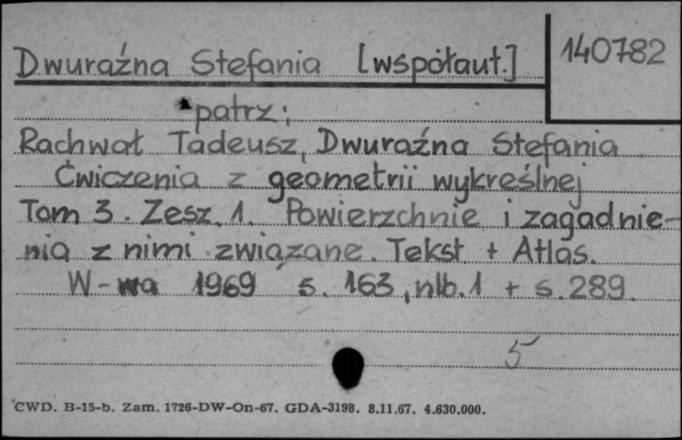 Dwuraźna Stefania [współaut.]
140782
patrz:
Rachwał Tadeusz, Dwuraźna Stefania
Ćwiczenia z geometrii wykreślnej
Tom 3. Zesz. 1. Powierzchnie i zagadnie-
nia z nimi związane. Tekst + Atlas.
W-wa 1969 s. 163, nlb. 1 + s. 289.
5
CWD. B-15-b. Zam. 1726-DW-On-67. GDA-3198. 8.11.67. 4.630.000.